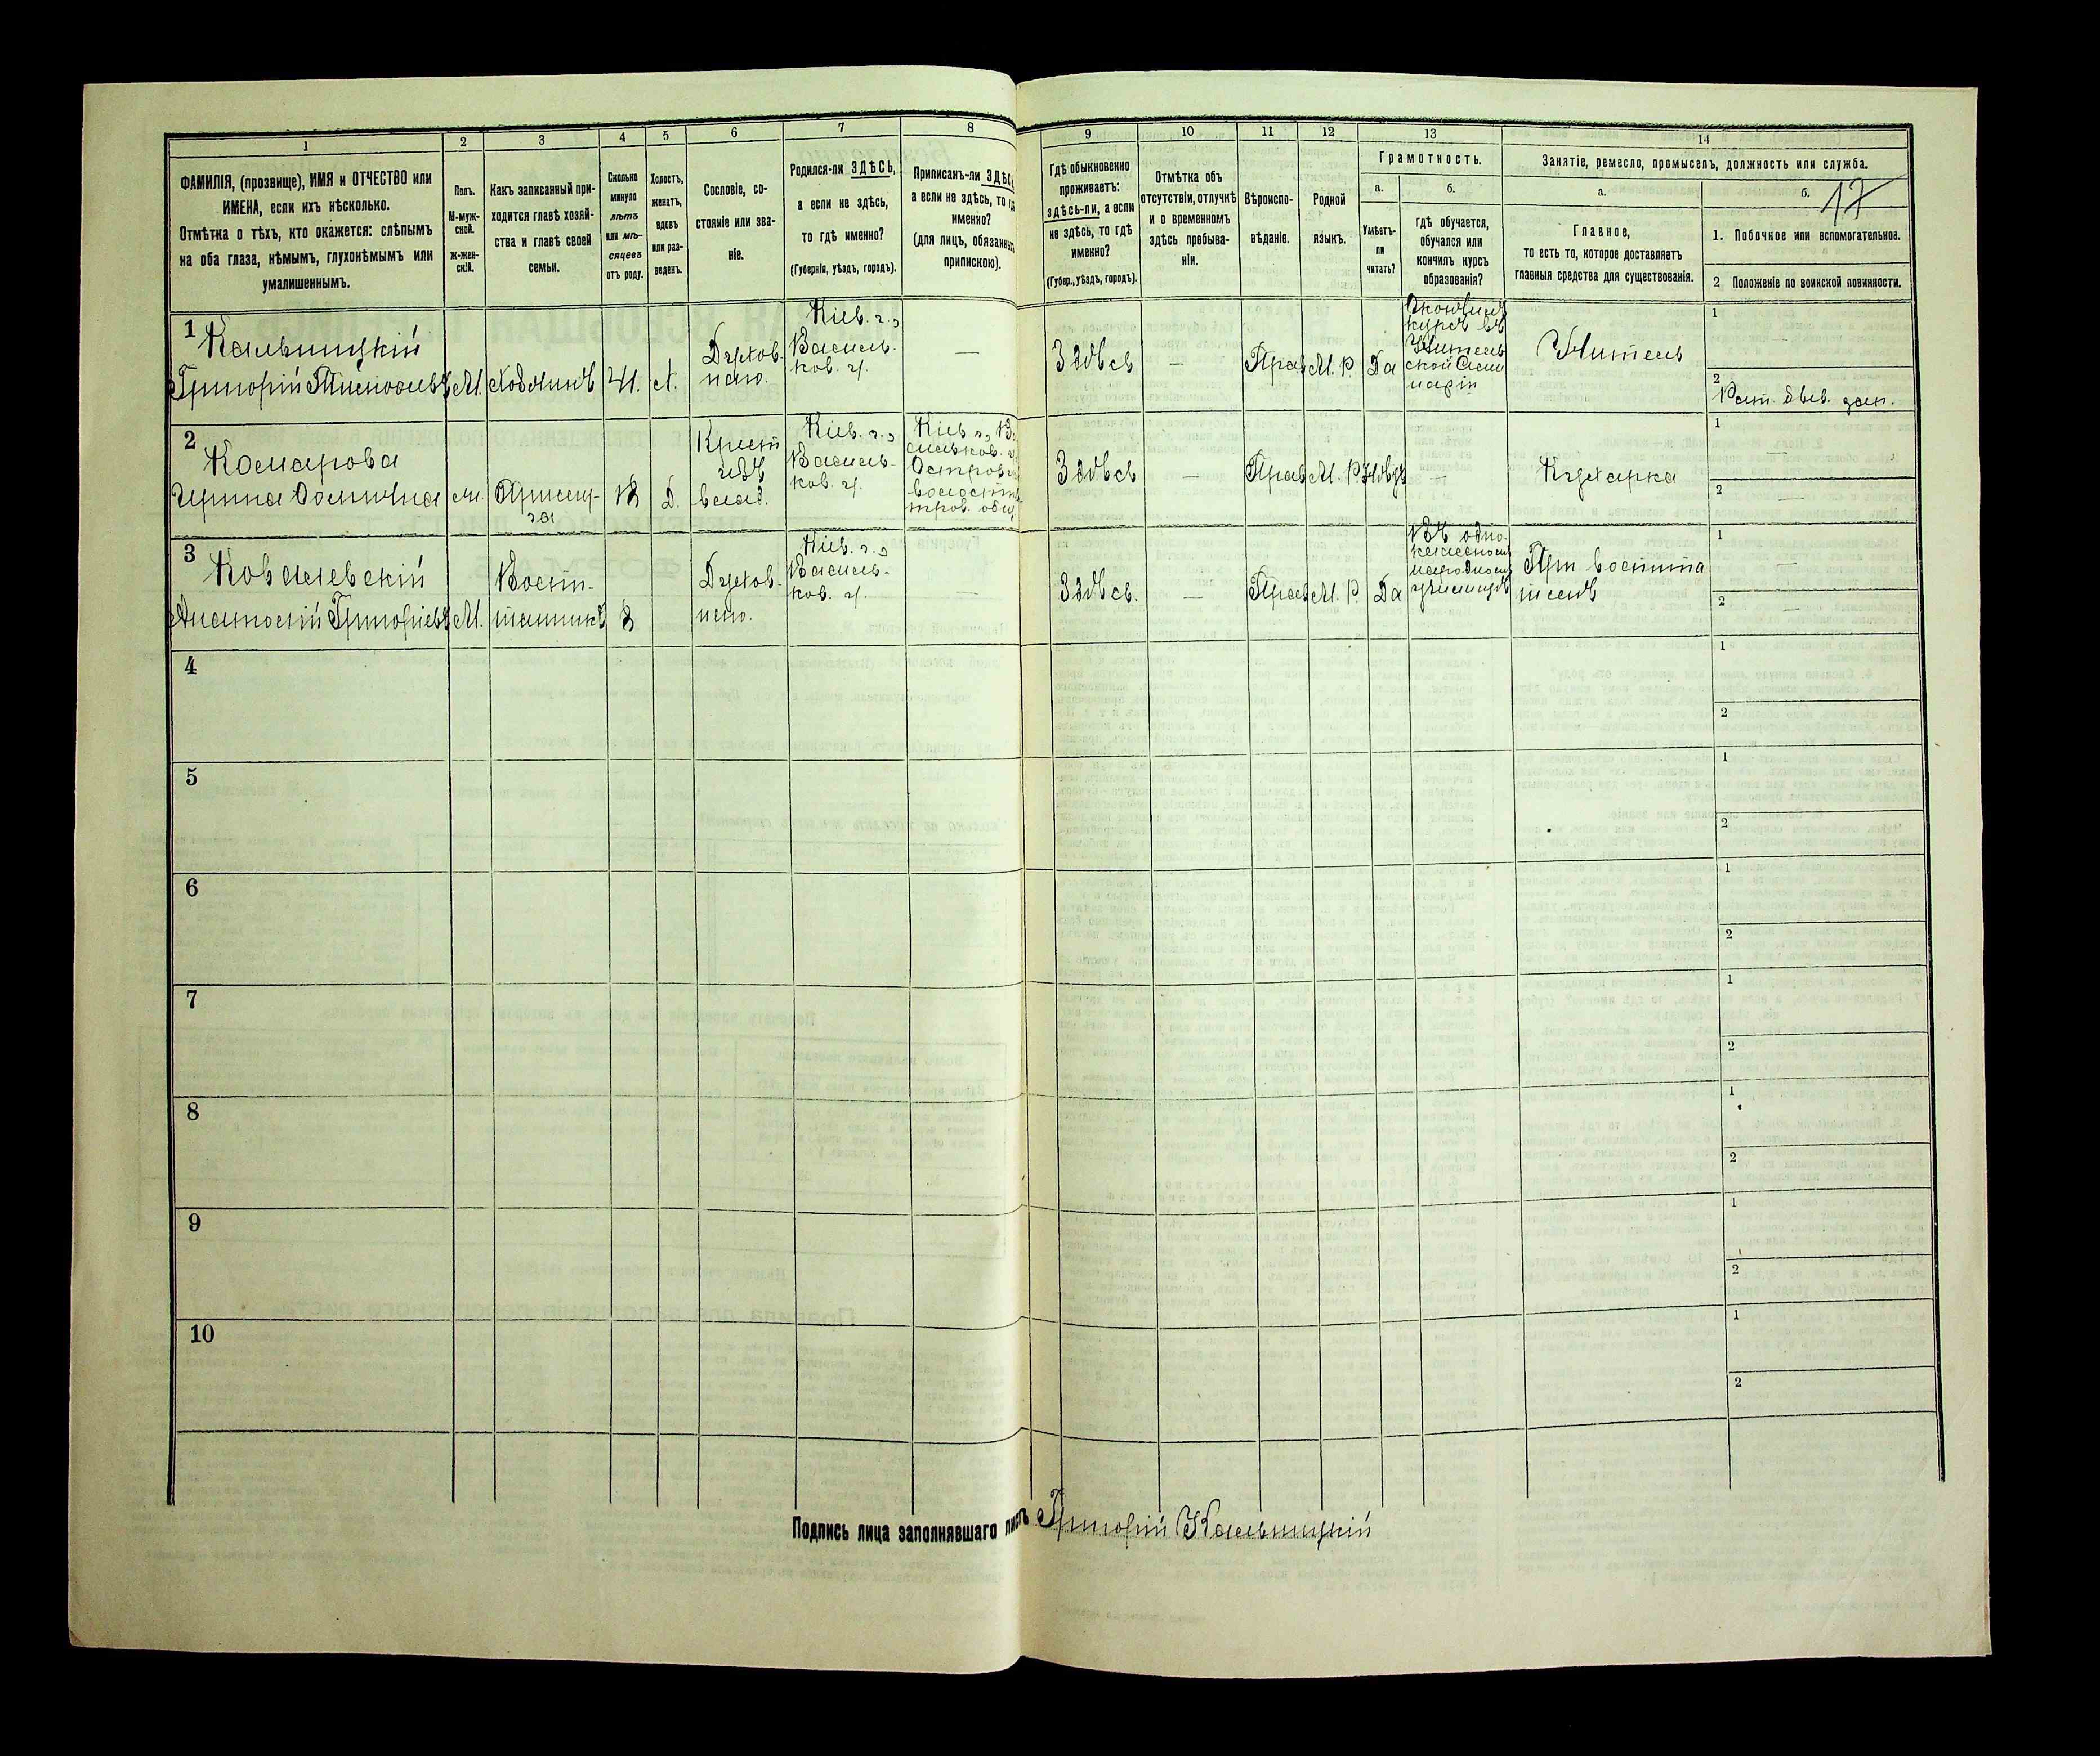 1
2
3
4
5
6
7
8
9
10
11
12
13
14
ФАМИЛІЯ, (прозвище), ИМЯ и ОТЧЕСТВО или
ИМЕНА, если ихъ нѣсколько.
Отмѣтка о тѣхъ, кто окажется: слѣпымъ
на оба глаза, нѣмымъ, глухонѣмымъ или
умалишеннымъ.
Полъ.
М-муж-
ской.
ж-жен-
скій.
Какъ записанный при-
ходится главѣ хозяй-
ства и главѣ своей
семьи.
Сколько
минуло
лѣтъ
или мѣ-
сяцевъ
отъ роду.
Холостъ,
женатъ,
вдовъ
или раз-
веденъ.
Сословіе, со-
стояніе или зва-
ніе.
Родился-ли ЗДѢСЬ,
а если не здѣсь,
то гдѣ именно?
(Губернія, уѣздъ, городъ).
Приписанъ-ли
а если не здѣсь, то
именно?
(для лицъ,
припискою).
Гдѣ обыкновенно
проживаетъ:
здѣсь-ли, а если
не здѣсь, то гдѣ
именно?
(Губер., уѣздъ, городъ).
Отмѣтка объ
отсутствіи, отлучкѣ
и о временномъ
здѣсь пребыва-
ніи.
Вѣроиспо-
вѣданіе.
Родной
языкъ.
Грамотность.
а.
б.
Умѣетъ-
ли
читать?
гдѣ обучается,
обучался или
кончилъ курсъ
образованія?
Занятіе, ремесло, промыселъ, должность или служба.
а.
б.
17
Главное,
то есть то, которое доставляетъ
главныя средства для существованія.
1. Побочное или вспомогательное.
2 Положеніе по воинской повинности.
1
Кальницкій
Григорій
М.
Хозяинъ
Духов.
Кіев. г.,
Василь-
ков. у.
—
Здѣсь
—
Прав.
М. Р.
Да
курсъ въ
Учитель
ской Семи
наріи
Учитель
1
—
2
2
Комарова
Ирина
Прислу-
га
18
Д.
Крест
изъ
влад.
Кіев. г.,
Василь-
ков. у.
Кіев. г.,
Здѣсь
—
Прав.
М. Р.
—
Кухарка
1
—
2
—
3
Ковалевскій
Анатолій
М.
Восп-
8
Духов.
Кіев. г.,
Василь-
ков. у.
—
Здѣсь.
—
Прав.
М. Р.
Да
Въ одно-
классномъ
народномъ
училищѣ
При воспита
телѣ
1
—
2
—
4
1
2
5
1
2
6
1
2
7
1
2
8
1
2
9
1
2
10
1
2
Подпись лица заполнявшаго листъ Григорій Кальницкій